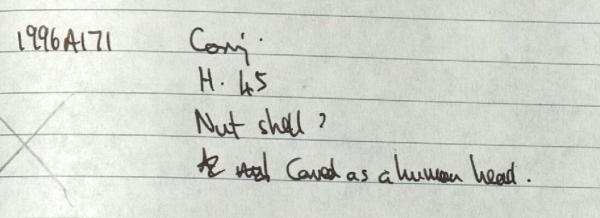 1996A171 Conj.
H. 45
Nut shell?
Caved as a human head.